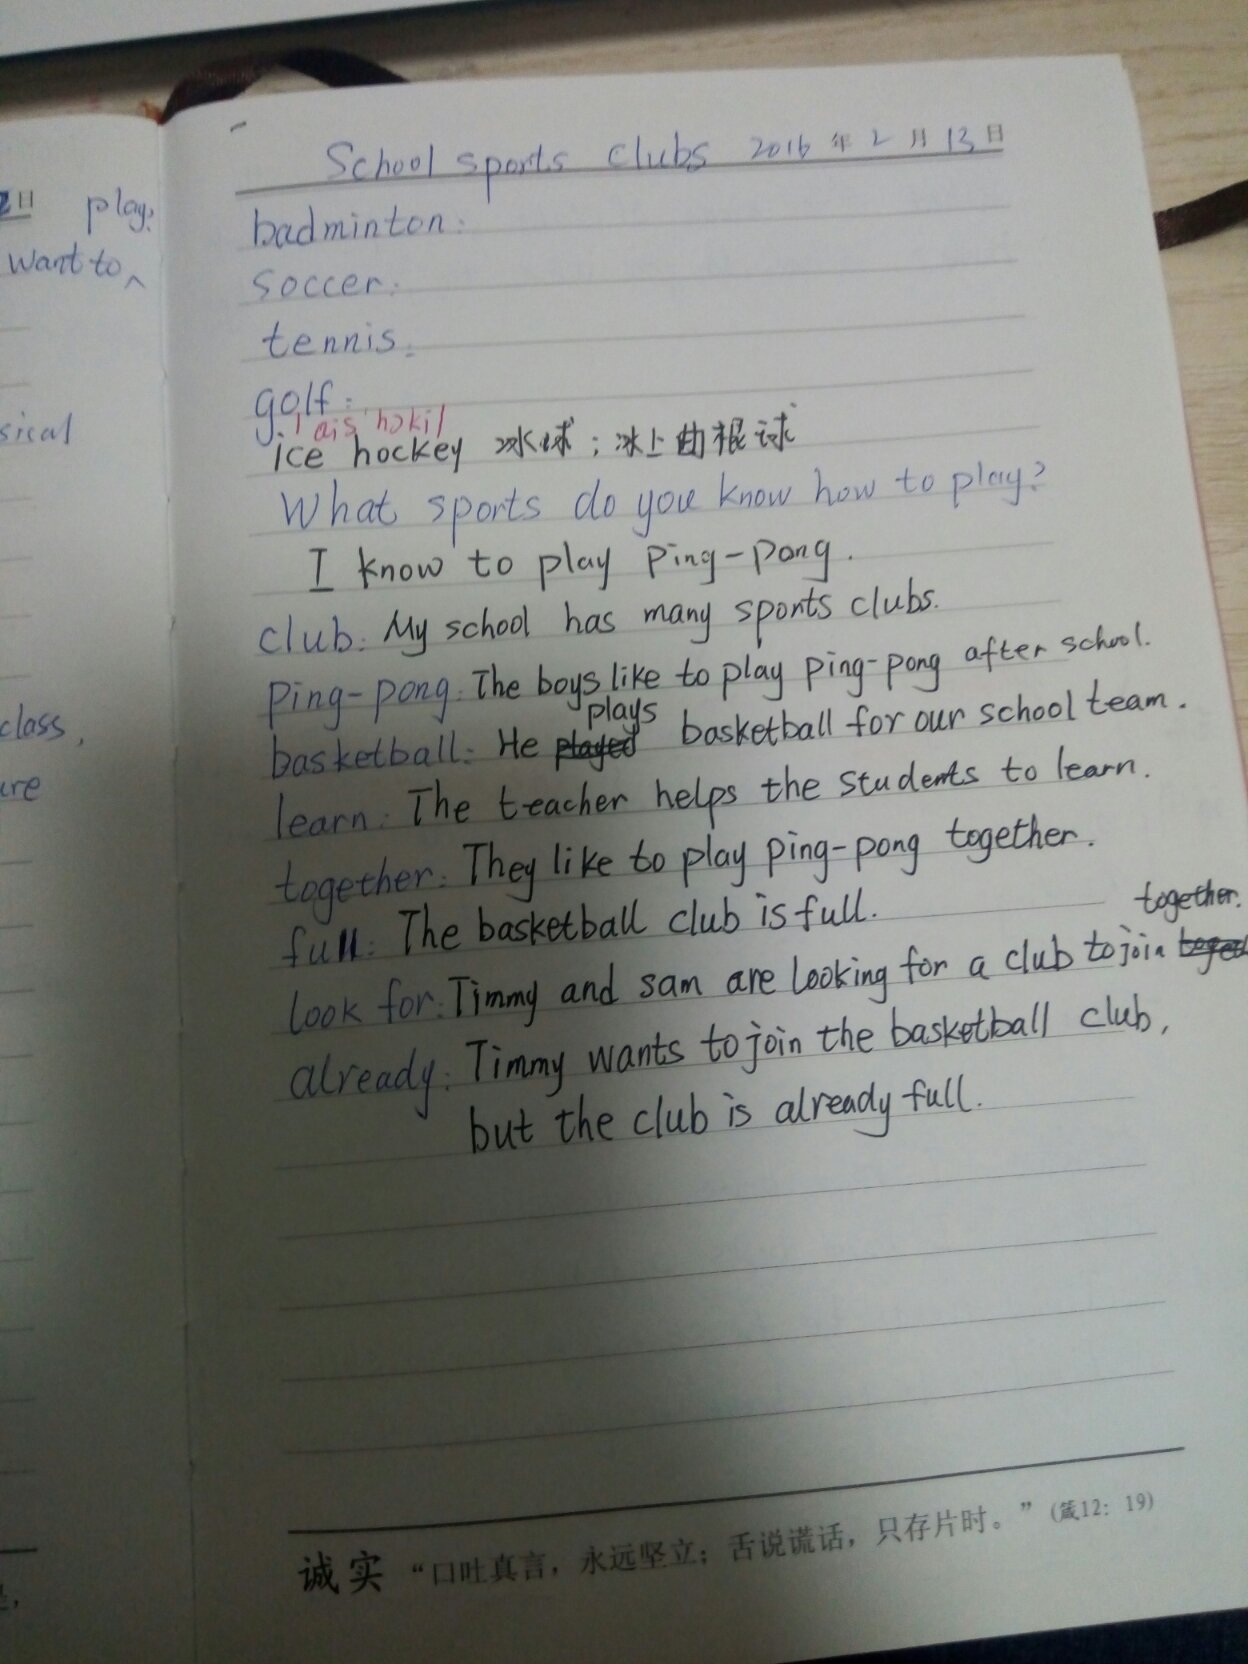 School sports clubs 2016年2月13日
badminton:
soccer:
tennis:
golf:
ice hockey 冰球；冰上曲棍球
What sports do you know how to play?
I know to play ping-pong.
club: My school has many sports clubs.
ping-pong: The boys like to play ping-pong after school.
plays
basketball: He played basketball for our school team.
learn: The teacher helps the students to learn.
together: They like to play ping-pong together.
full: The basketball club is full.
together.
look for: Timmy and sam are looking for a club to join
already: Timmy wants to join the basketball club,
but the club is already full.
诚实 “口吐真言，永远坚立；舌说谎话，只存片时。”(箴12：19)
日 play?
want to ^
sical
class,
ure